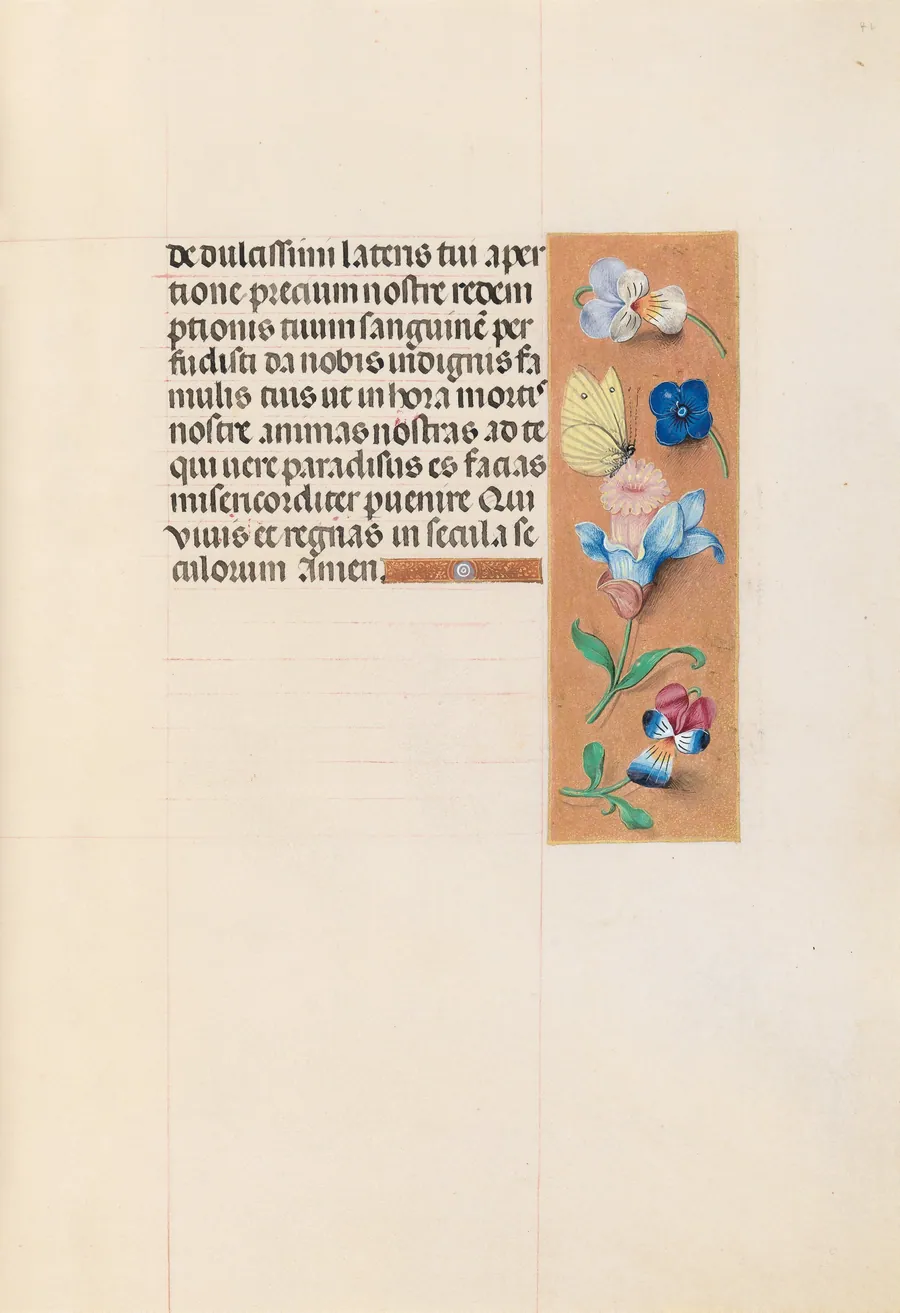 de dulcissimi lateris tui aper
tione precium nostre redem
ptionis tuum sanguinē per
fudisti da nobis indignis fa
mulis tuis ut in hora mortis
nostre animas nostras ad te
qui uere paradisus es facias
misericorditer puenire Qui
viuis et regnas in secula se
culorum Amen.